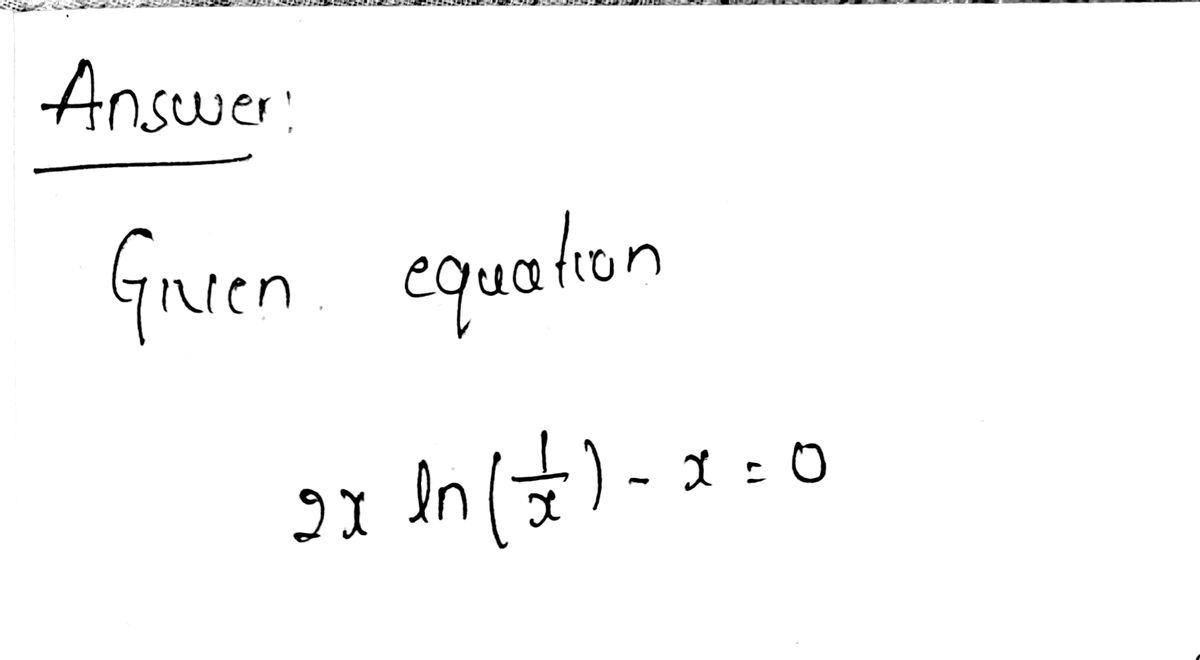 Answer:
Given equation
2x ln(1/x) - x = 0